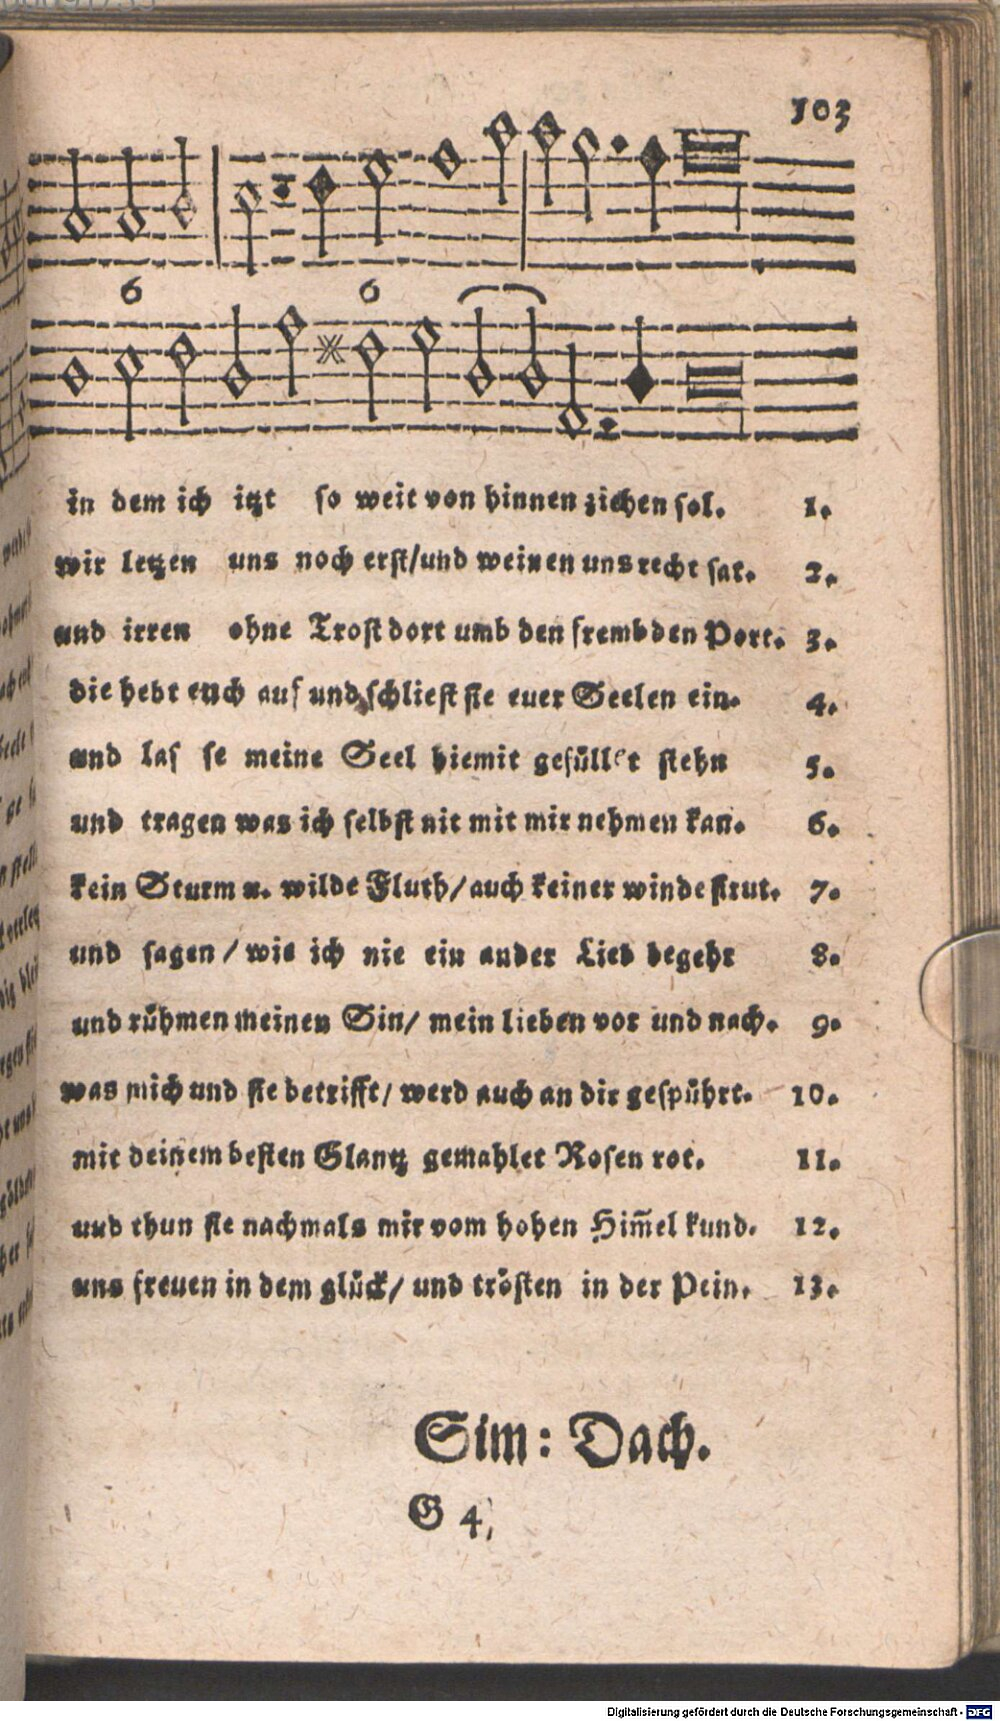 103
6 6
in dem ich itzt so weit von hinnen ziehen sol. 1.
wir letzen uns noch erst/und weinen uns recht sat. 2.
und irren ohne Trost dort umb den frembden Port. 3.
die hebt euch auf und schliest sie euer Seelen ein. 4.
und las se meine Seel hiemit gefüllet stehn 5.
und tragen was ich selbst nit mit mir nehmen kan. 6.
kein Sturm u. wilde Fluth/auch keiner winde strut. 7.
und sagen/wie ich nie ein ander Lied begehr 8.
und rühmen meinen Sin/ mein lieben vor und nach. 9.
was mich und sie betrifft/ werd auch an dir gespührt. 10.
mit deinem besten Glantz gemahlet Rosen rot. 11.
und thun sie nachmals mir vom hohen Him̄el kund. 12.
uns freuen in dem glück/ und trösten in der Pein. 13.
Sim: Dach.
G 4
Digitalisierung gefördert durch die Deutsche Forschungsgemeinschaft - DFG